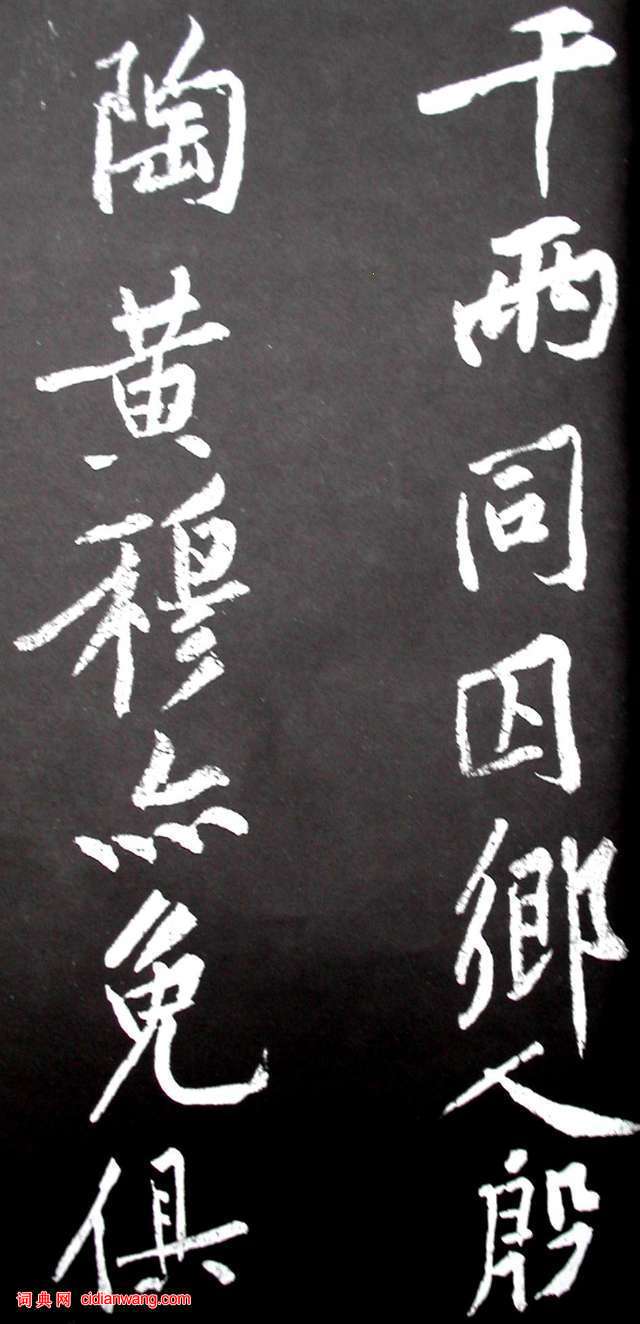 千兩同囚鄉人殷
陶黄穆亦免俱
词典网 cidianwang.com